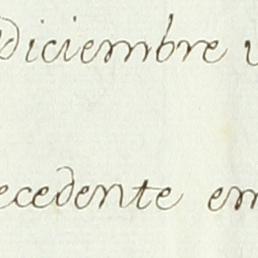 Diciembre
ecedente em